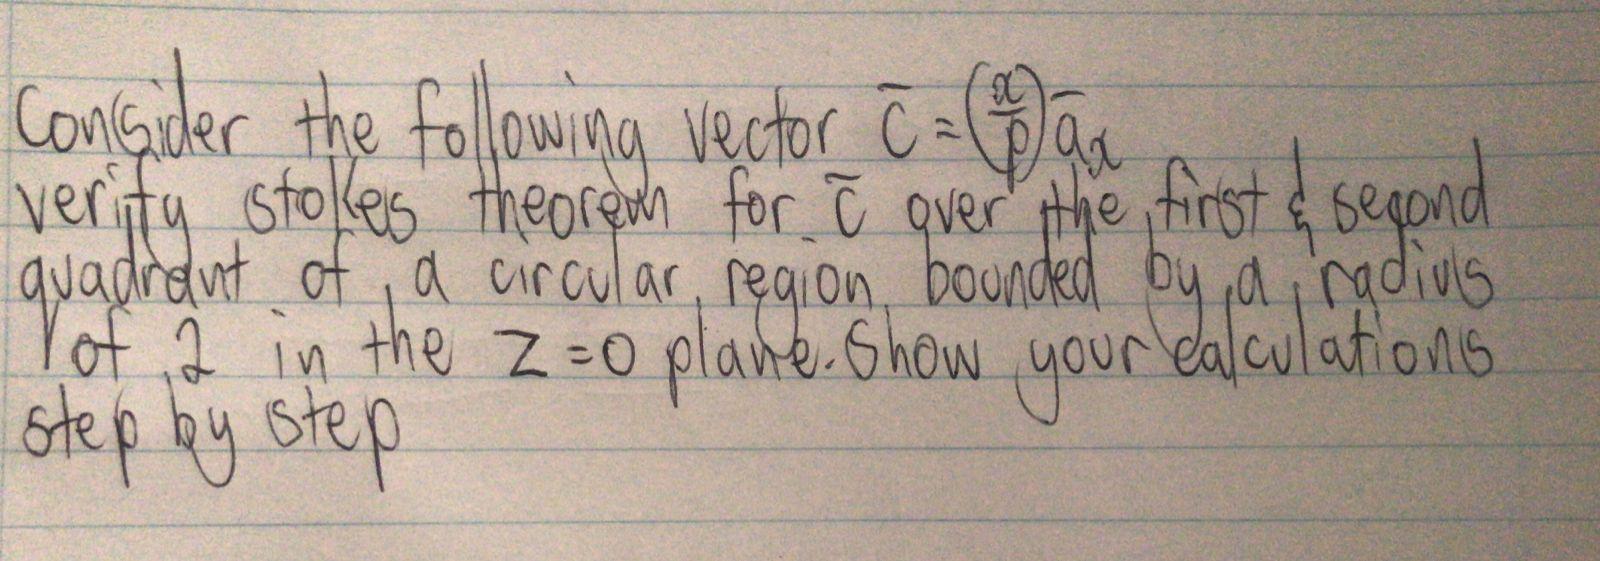 Consider the following vector c̄ = (x/ρ) āx
verify stokes theorem for c̄ over the first & second
quadrant of a circular region bounded by a radius
of 2 in the z=0 plane. Show your calculations
step by step